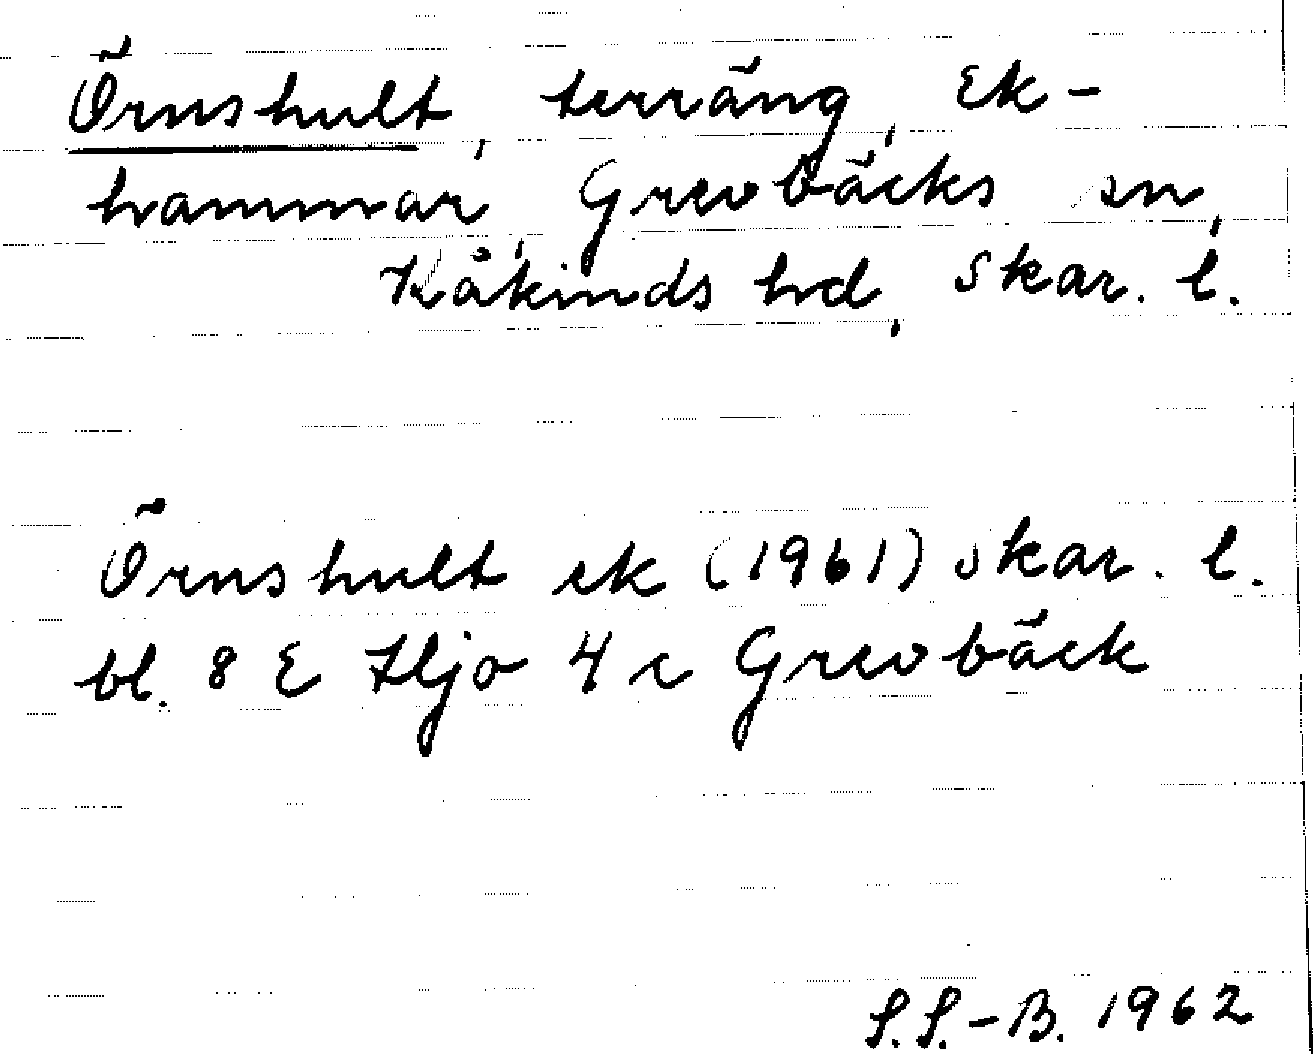 Örnshult, terräng, Ek-
hammar, Grevbäcks sn,
Kåkinds hd, Skar. l.
Örnshult ek (1961) Skar. l.
bl. 8 E Hjo 4 c Grevbäck
S.S.-B. 1962